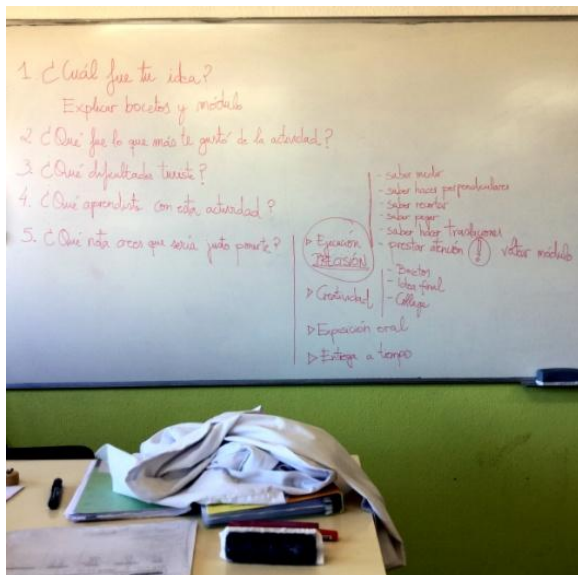 1. ¿Cuál fue tu idea?
Explicar bocetos y módulo
2. ¿Qué fue lo que más te gustó de la actividad?
3. ¿Qué dificultades tuviste?
4. ¿Qué aprendiste con esta actividad?
5. ¿Qué nota crees que sería justo ponerte?
▷ Ejecución
PRECISIÓN
- saber medir
- saber hacer perpendiculares
- saber recortar
- saber pegar
- saber hacer traslaciones
- prestar atención ! voltear módulo
▷ Creatividad
- Bocetos
- Idea final
- Collage
▷ Exposición oral
▷ Entrega a tiempo